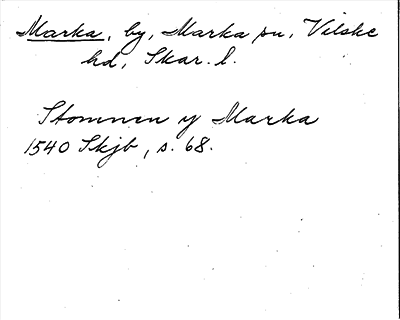 Marka, by, Marka sn, Vilske
hd, Skar. l.
Stommen y Marka
1540 Skjb, s. 68.